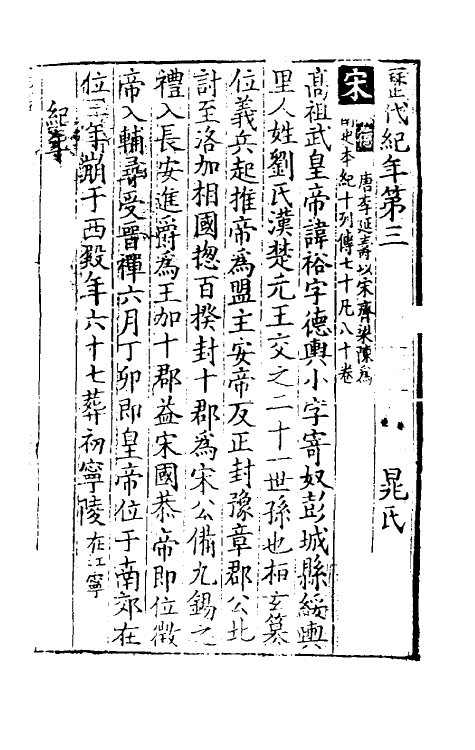 歷代紀年第三
晁氏
宋
唐李延壽以宋齊梁陳爲
南史本紀十列傳七十凡八十卷
高祖武皇帝諱裕字德輿小字寄奴彭城縣綏輿
里人姓劉氏漢楚元王交之二十一世孫也桓玄篡
位義兵起推帝爲盟主安帝反正封豫章郡公北
討至洛加相國揔百揆封十郡爲宋公備九錫之
禮入長安進爵爲王加十郡益宋國恭帝即位徵
帝入輔尋受晉禪六月丁卯即皇帝位于南郊在
位三年崩于西殿年六十七葬初寧陵在江寧
紀年